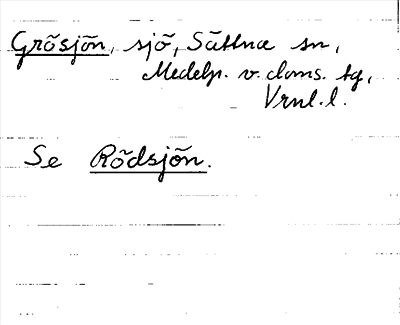 Grösjön, sjö, Sättna sn,
Medelp. v. doms. tg,
Vrnl. l.
Se Rödsjön.